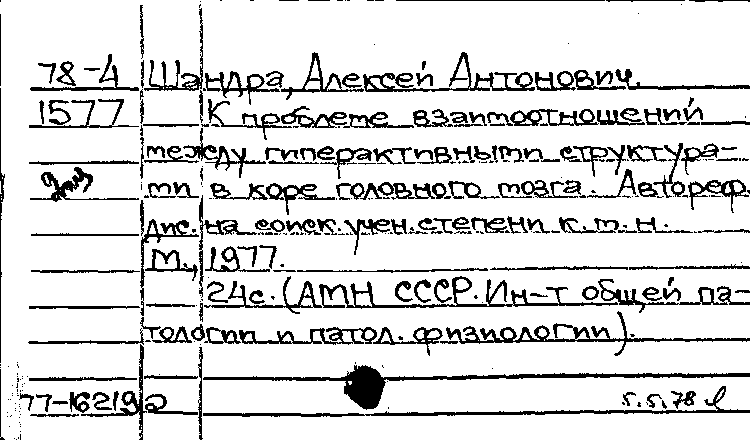 78-4 Шандра, Алексей Антонович.
1577 К проблеме взаимоотношений
между гиперактивными структура-
ми в коре головного мозга. Автореф.
дис. на соиск. учен. степени к. м. н.
М., 1977.
24с. (АМН СССР. Ин-т общей па-
тологии и патол. физиологии).
77-16219а 5.5.78